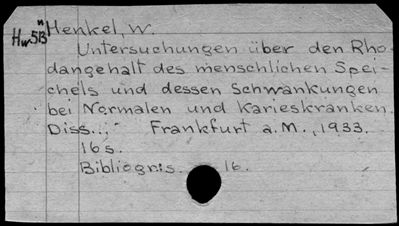 Hw5B "Henkel, W.
Untersuchungen über den Rho-
dangehalt des menschlichen Spei-
chels und dessen Schwankungen
bei Normalen und Karieskranken.
Diss.,; Frankfurt a.M., 1933.
16 s.
Bibliogris. 16.